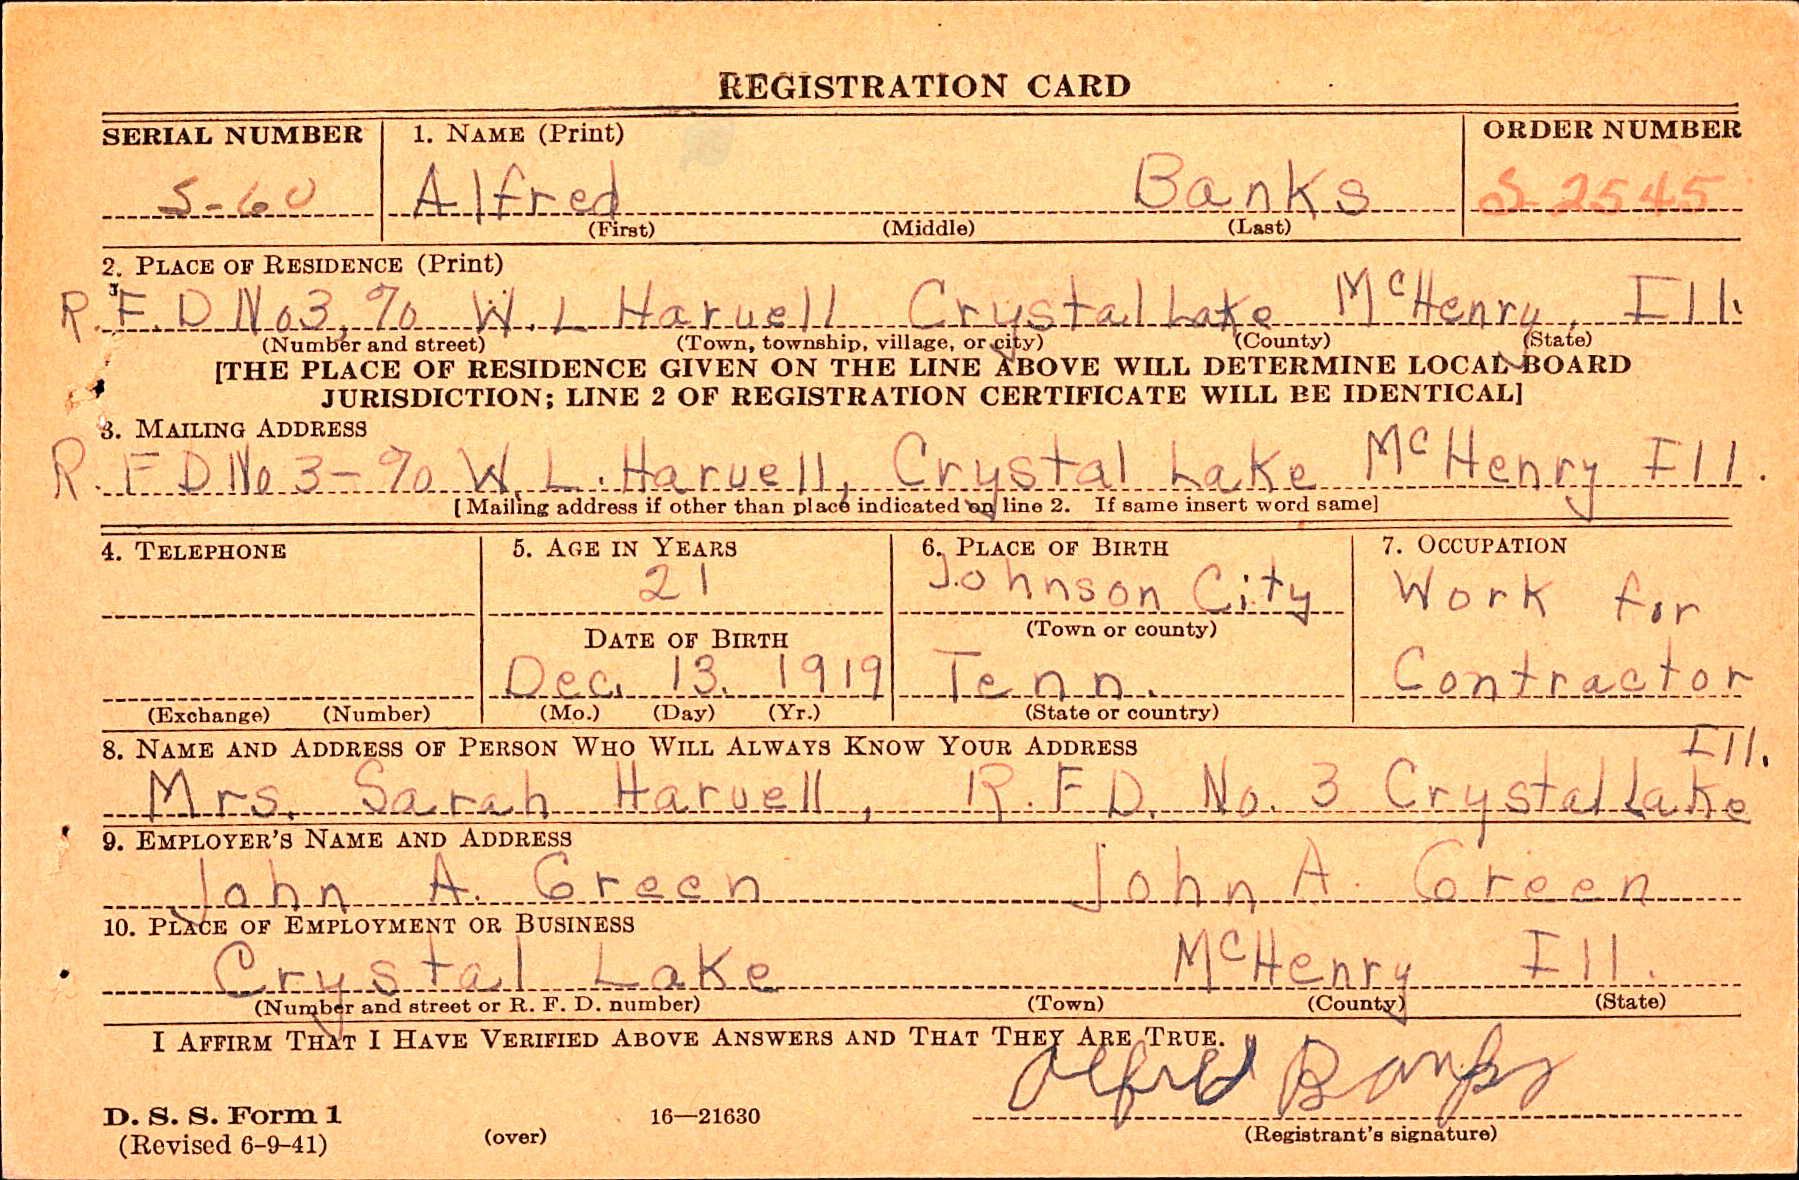 REGISTRATION CARD
SERIAL NUMBER 1. NAME (Print) ORDER NUMBER
S-60 Alfred Banks S-2545
(First) (Middle) (Last)
2. PLACE OF RESIDENCE (Print)
R.F.D No3, % W.L Harvell Crystal Lake McHenry, Ill.
(Number and street) (Town, township, village, or city) (County) (State)
[THE PLACE OF RESIDENCE GIVEN ON THE LINE ABOVE WILL DETERMINE LOCAL BOARD
JURISDICTION; LINE 2 OF REGISTRATION CERTIFICATE WILL BE IDENTICAL]
3. MAILING ADDRESS
R.F D No 3- % W.L. Harvell, Crystal Lake McHenry Ill.
[Mailing address if other than place indicated on line 2. If same insert word same]
4. TELEPHONE 5. AGE IN YEARS 6. PLACE OF BIRTH 7. OCCUPATION
21 Johnson City Work for
DATE OF BIRTH (Town or county)
Dec. 13. 1919 Tenn. Contractor
(Exchange) (Number) (Mo.) (Day) (Yr.) (State or country)
8. NAME AND ADDRESS OF PERSON WHO WILL ALWAYS KNOW YOUR ADDRESS Ill.
Mrs. Sarah Harvell, R.F.D. No. 3 Crystal Lake
9. EMPLOYER'S NAME AND ADDRESS
John A. Green John A. Green
10. PLACE OF EMPLOYMENT OR BUSINESS
Crystal Lake McHenry Ill.
(Number and street or R. F. D. number) (Town) (County) (State)
I AFFIRM THAT I HAVE VERIFIED ABOVE ANSWERS AND THAT THEY ARE TRUE.
Alfred Banks
D. S. S. Form 1 16—21630
(Revised 6-9-41) (over) (Registrant's signature)